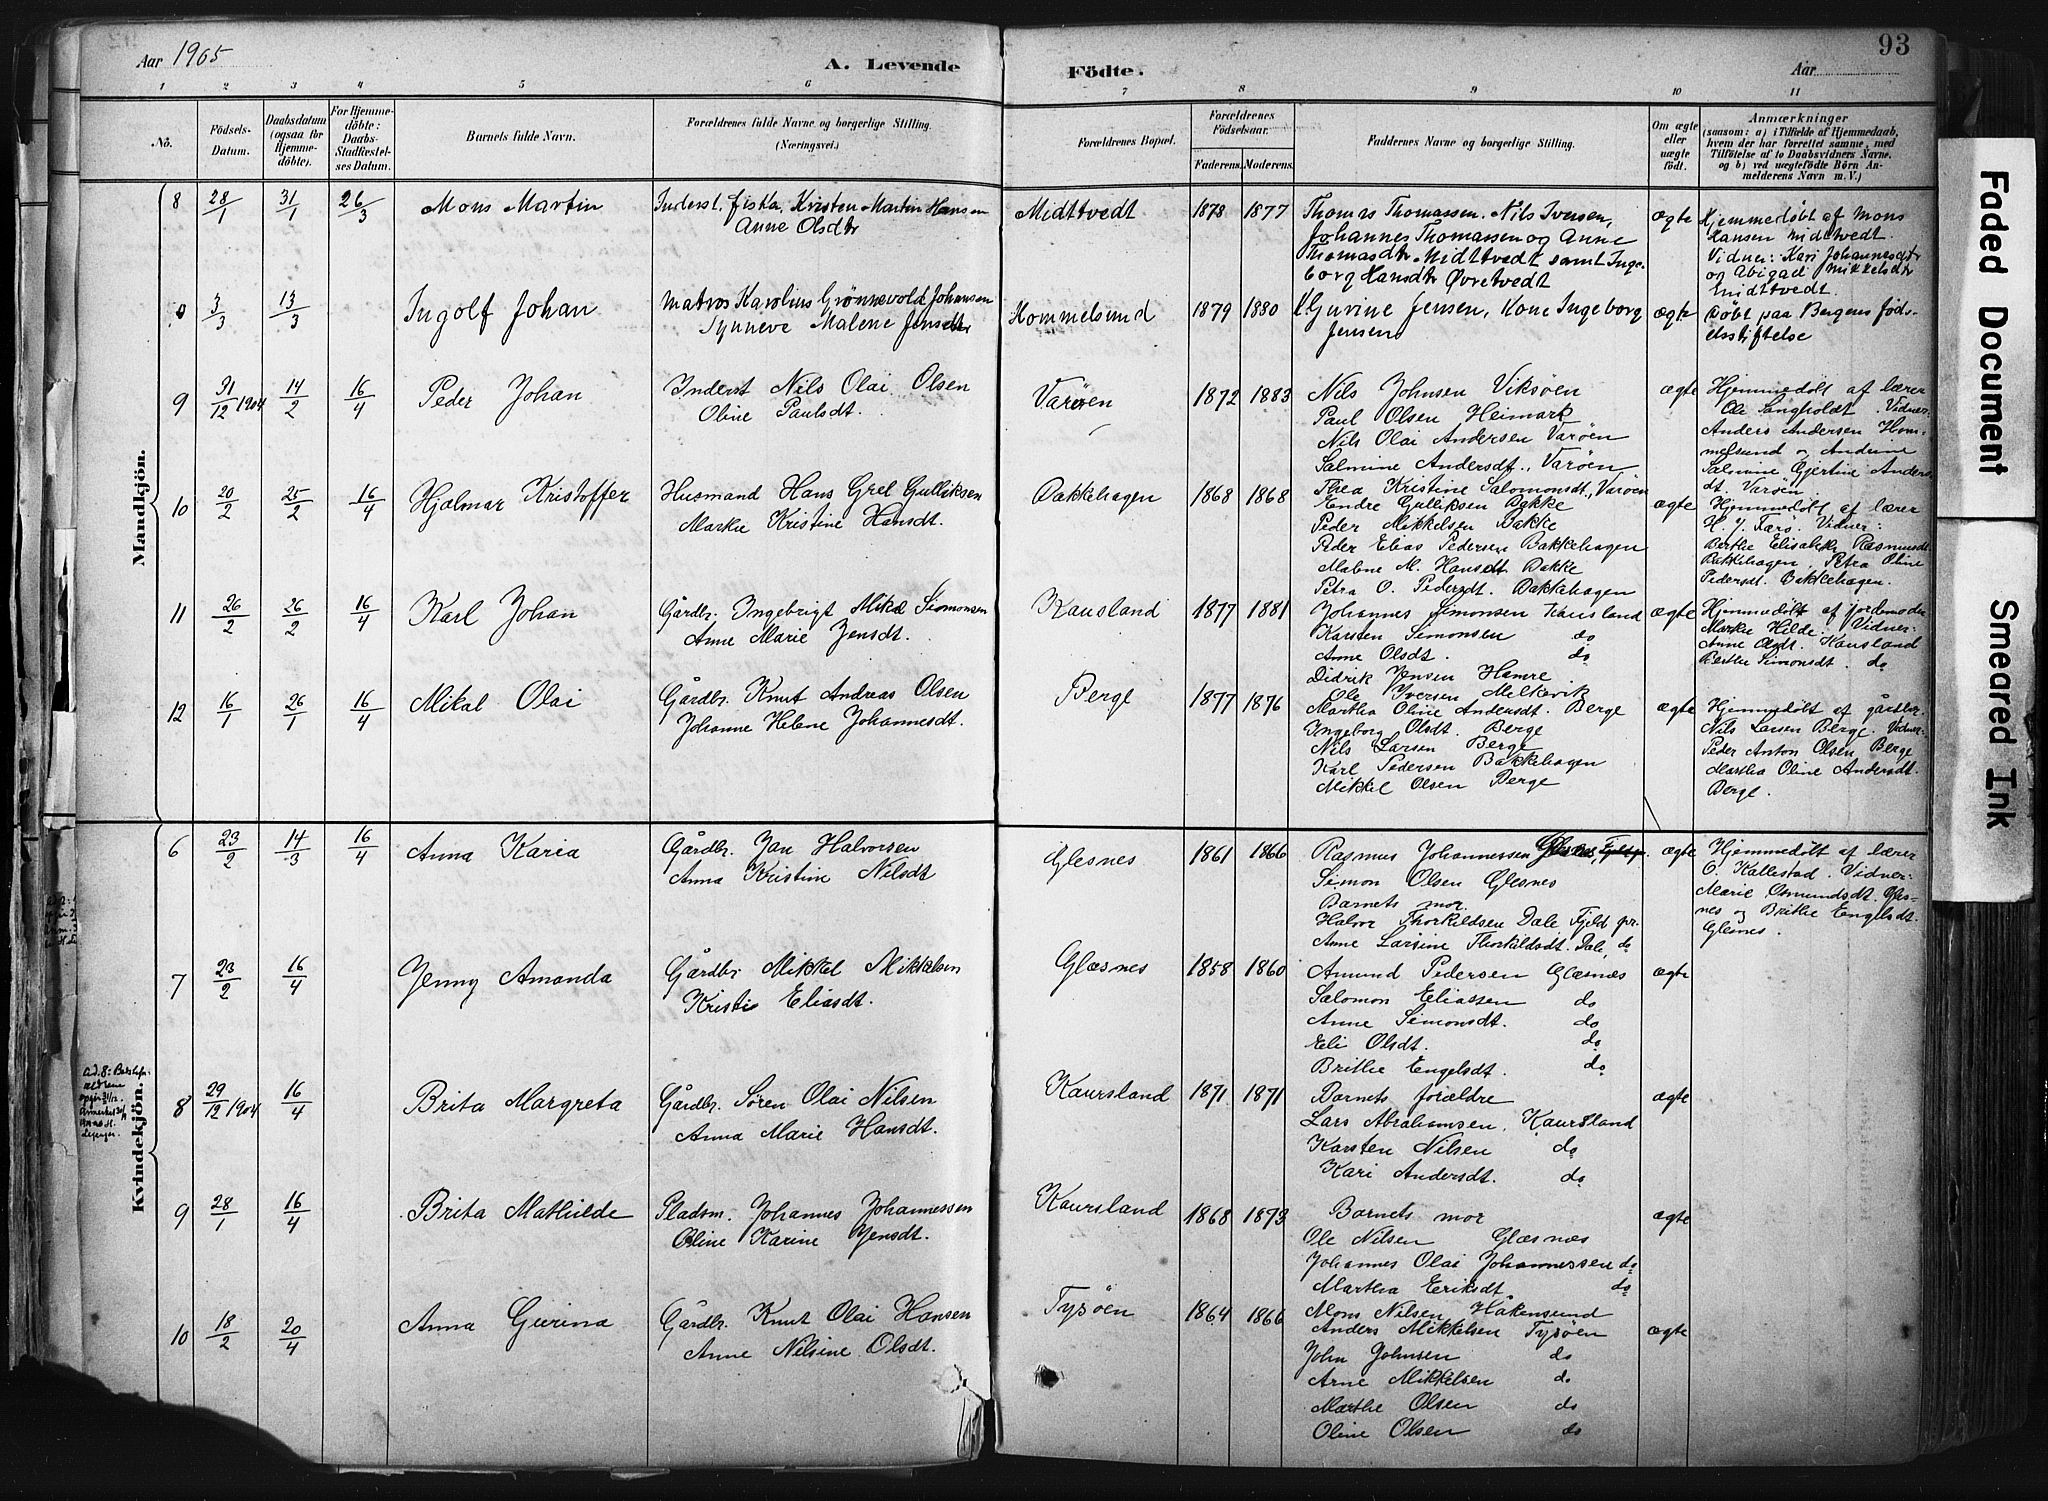 Aar 1905
A. Levende
Födte.
93
Aar
1 2 3 4 5 6 7 8 9 10 11
No.
Födsels-
Datum.
Daabsdatum
(ogsaa for
Hjemme-
döbte).
For Hjemme-
döbte:
Daabs-
Stadfæstel-
ses Datum.
Barnets fulde Navn.
Forældrenes fulde Navne og borgerlige Stilling.
(Næringsvei.)
Forældrenes Bopæl.
Forældrenes
Födselsaar.
Faderens. Moderens.
Faddernes Navne og borgerlige Stilling.
Om ægte
eller
uægte
födt.
Anmærkninger
(saasom: a) i Tilfælde af Hjemmedaab,
hvem der har forrettet samme, med
Tilföielse af to Daabsvidners Navne,
og b) ved uægtefödte Börn An-
melderens Navn m. V.)
Mandkjön.
8 28/1 31/1 26/3 Mons Martin
Inderst. fisker Kristen Martin Hansen
Anne Olsdtr
Midttvedt 1878 1877
Thomas Thomassen. Nils Iversen,
Johannes Thomassen og Anne
Thomasdtr Midttvedt samt Inge-
borg Hansdtr Øvretvedt
ægte
Hjemmedøbt af Mons
Hansen Midttvedt.
Vidner: Kari Johannesdtr
og Abigael Mikkelsdtr
Midttvedt.
3/3 13/3 Ingolf Johan
Matros Karolius Grønnevold Johansen
Synneve Malene Jensdtr
Hommelsund 1879 1880
Gurine Jensen, Kone Ingeborg
Jensen
ægte
Døbt paa Bergens fød-
selsstiftelse
9 31/12 1904 14/2 16/4 Peder Johan
Inderst Nils Olai Olsen
Oline Paulsdt.
Varøen 1872 1883
Nils Johnsen Viksøen
Paul Olsen Heimark
Nils Olai Andersen Varøen
Salmine Andersdt., Varøen
Thea Kristine Salomonsdt., Varøen
ægte
Hjemmedøbt af lærer
Ole Sangholdt. Vidner:
Anders Andersen Hom-
melsund og Andrine
Salmine Gjertine Anders-
dt. Varøen
10 20/2 25/2 16/4 Hjalmar Kristoffer
Husmand Hans Grel Gulliksen
Marthe Kristine Hansdt.
Bakkehagen 1868 1868
Endre Gulliksen Bakke
Peder Mikkelsen Bakke
Peder Elias Pedersen Bakkehagen
Malene M. Hansdt. Bakke
Petra O. Pedersdt. Bakkehagen
ægte
Hjemmedøbt af lærer
H. J. Færø. Vidner:
Berthe Elisabeth Rasmusdt.
Bakkehagen, Petra Oline
Pedersdt. Bakkehagen.
11 26/2 26/2 16/4 Karl Johan
Gårdbr. Ingebrigt Mikal Simonsen
Anne Marie Jensdt.
Kausland 1877 1881
Johannes Simonsen Kausland
Karsten Simonsen do
Anne Olsdt. do
Didrik Jensen Hamre
ægte
Hjemmedøbt af jordmoder
Marthe Hilde. Vidner:
Anne Olsdt. Kausland
Berthe Simonsdt. do
12 16/1 26/1 16/4 Mikal Olai
Gårdbr. Knut Andreas Olsen
Johanne Helene Johannesdt.
Berge 1877 1876
Ole Iversen Melkevik
Martha Oline Andersdt. Berge
Ingeborg Olsdt. Berge
Nils Larsen Berge
Karl Pedersen Bakkehagen
Mikkel Olsen Berge
ægte
Hjemmedøbt af gårdbr.
Nils Larsen Berge. Vidner:
Peder Anton Olsen Berge
Martha Oline Andersdt.
Berge.
Kvindekjön.
6 23/2 14/3 16/4 Anna Karia
Gårdbr. Jan Halvorsen
Anna Kristine Nilsdt
Glesnes 1861 1866
Rasmus Johannessen
Simon Olsen Glesnes
Barnets mor.
Halvor Thorkildsen Dale, Fjeld pr.
Anne Larsine Thorkildsdt. Dale, do
ægte
Hjemmedøbt af lærer
O. Kallestad. Vidner:
Marie Osmundsdt. Gles-
nes og Brithe Engelsdt.
Glesnes.
7 23/2 16/4 Jenny Amanda
Gårdbr Mikkel Mikkelsen
Kristi Eliasdt.
Glæsnes 1858 1860
Amund Pedersen Glæsnæs
Salomon Eliassen do
Anne Simonsdt. do
Eli Olsdt. do
Brithe Engelsdt. do
ægte
8 29/12 1904 16/4 Brita Margreta
Gårdbr. Søren Olai Nilsen
Anna Marie Hansdt.
Kaursland 1871 1871
Barnets forældre
Lars Abrahamsen, Kaursland
Karsten Nilsen do
Kari Andersdt. do
ægte
9 28/1 16/4 Brita Mathilde
Pladsm. Johannes Johannessen
Oline Karine Jensdt.
Kaursland 1868 1873
Barnets mor
Ole Nilsen Glæsnæs
Johannes Olai Johannessen do
Martha Eriksdt. do
ægte
10 18/2 20/4 Anna Gurina
Gårdbr. Knut Olai Hansen
Anne Nilsine Olsdt.
Tysøen 1864 1866
Mons Nilsen Hakensund
Anders Mikkelsen Tysøen
John Johnsen do
Arne Mikkelsen do
Marthe Olsen do
Oline Olsen do
ægte
Faded Document
Smeared Ink